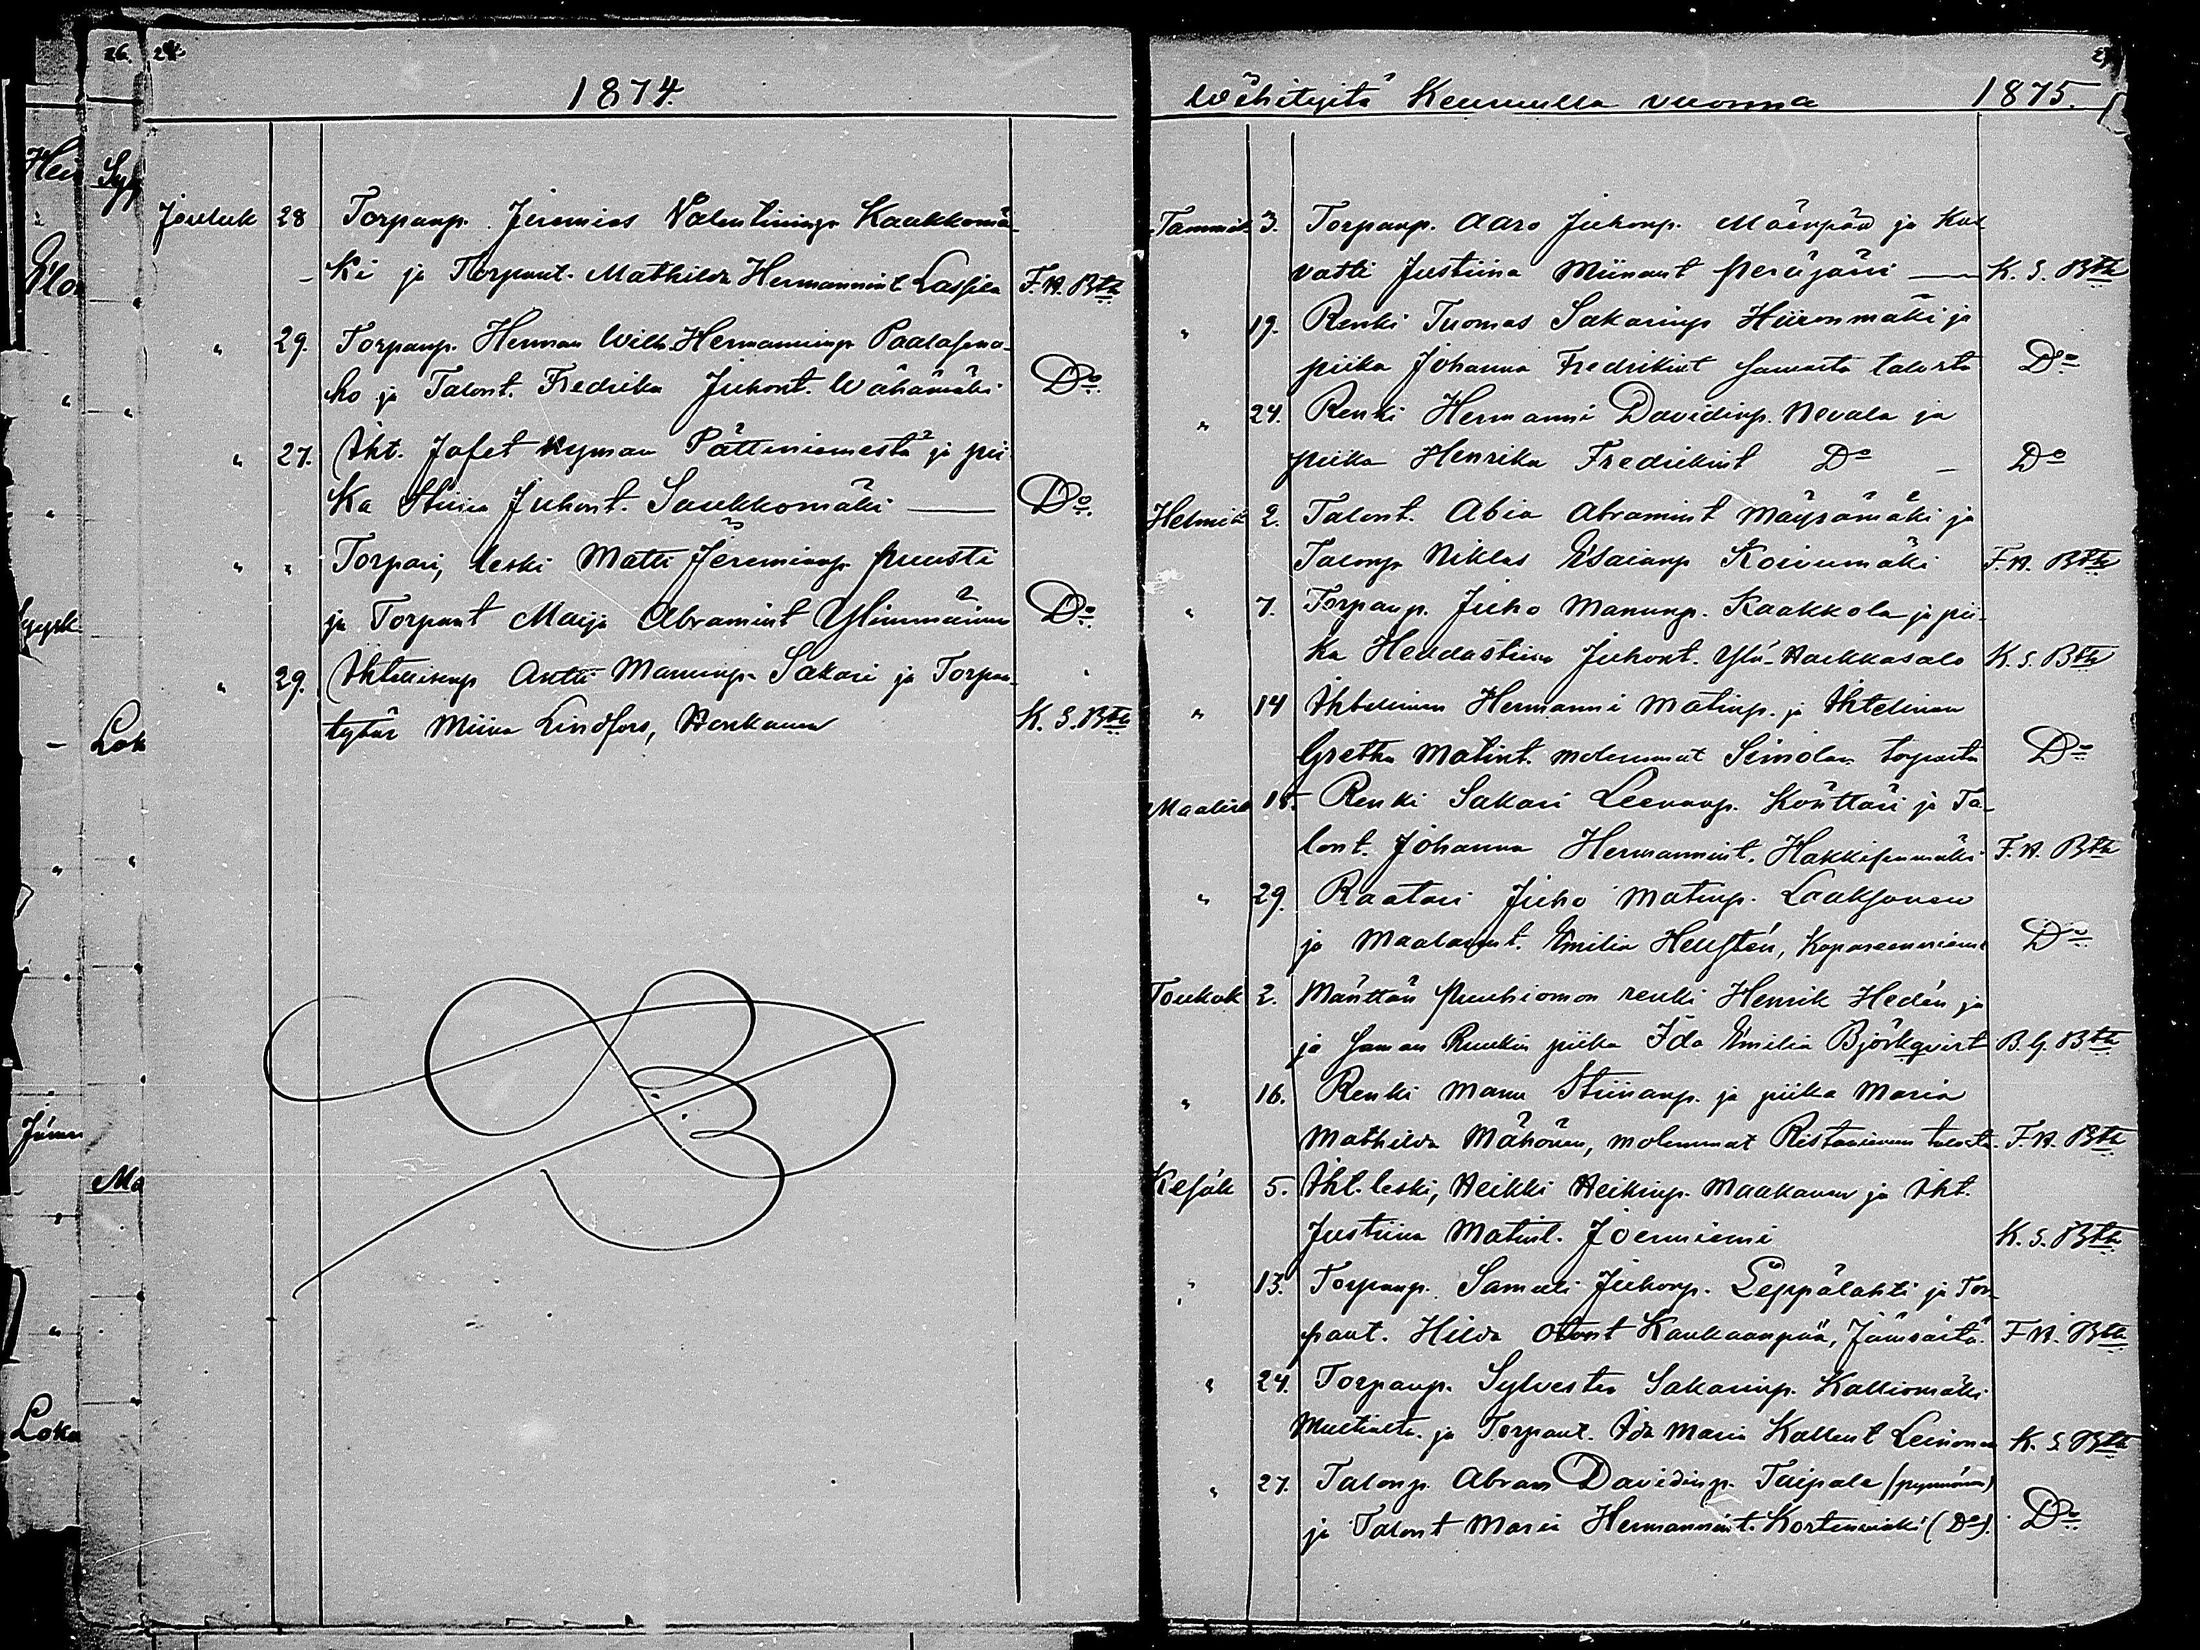 26.
24.
1874.
Jouluk 28 Torpanp. Jeremias Valentininp. Kaukkomä-
ki ja Torpant. Mathilda Hermannint. Lassila F.H. Bth
" 29. Torpanp. Herman Wilh. Hermanninp. Paalasma-
ho ja Talont. Fredrika Juhont. Wähämäki Do.
" 27. Iht. Jafet Nyman Pättiniemestä ja pii-
ka Stiina Juhont. Saukkomäki — Do.
" " Torpari, leski Matti Jeremianp. Puusti
ja Torpant Maija Abramint Ylimmäinen Do.
" 29. Ihtelliisenp Antti Manunp. Sakari ja Torpan-
tytär Miina Lindfors, Honkanen K. S. Bth
Hei
Syy
Elo
Lok
Ma
Loka
Wihityitä Keuruulla vuonna 1875.
Tammik 3. Torpanp. Aaro Juhonp. Mäenpää ja Kas
vatti Justiina Miinant Peräjärvi — K. S. Bth
" 19. Renki Tuomas Sakarinp Hiironmäki ja
piika Johanna Fredrikint samasta talosta Do
" 24. Renki Hermanni Davidinp. Nevala ja
piika Henrika Fredrikint Do — Do
Helmik 2. Talont. Abia Abramint Mäyrämäki ja
Talonp Niklas Esaianp Koivumäki F.H. Bth
" 7. Torpanp. Juho Manunp. Kaakkola ja pii-
ka Heddastiina Juhont. Ylä-Haukkasalo K. S. Bth
" 14 Ihtelinen Hermanni Matinp. ja Ihtelinen
Gretha Matint. molemmat Simolan torpasta Do
Maalisk 18. Renki Sakari Leenanp. Könttäri ja Ta-
lont. Johanna Hermannint. Hakkisenmäki F.H. Bth
" 29. Raatari Juho Matinp. Laaksonen
ja Maalarint. Emilia Hellstén, Do
Toukok 2. Mänttän Puuhiomon renki Henrik Hedén ja
ja saman Ruukin piika Ida Emilia Björkqvist B. G. Bth
" 16. Renki Manu Stiinanp. ja piika Maria
Mathilda Mähönen, molemmat Ristaniemen talosta F.H. Bth
Kesäk 5. Iht. leski, Heikki Heikinp. Maakanen ja Iht.
Justiina Matint. Joenniemi K. S. Bth
" 13. Torpanp. Samuli Juhonp. Leppälahti ja Tor-
pant. Hilda Otont Kaukaanpää, Jämsästä F.H. Bth
" 24. Torpanp. Sylvester Sakarinp. Kalliomäki
Multialta ja Torpant. Ida Maria Kallent Leinonen K. S. Bth
" 27. Talonp. Abram Davidinp. Taipale
ja Talont Maria Hermannint. Kortenmäki (Do). Do